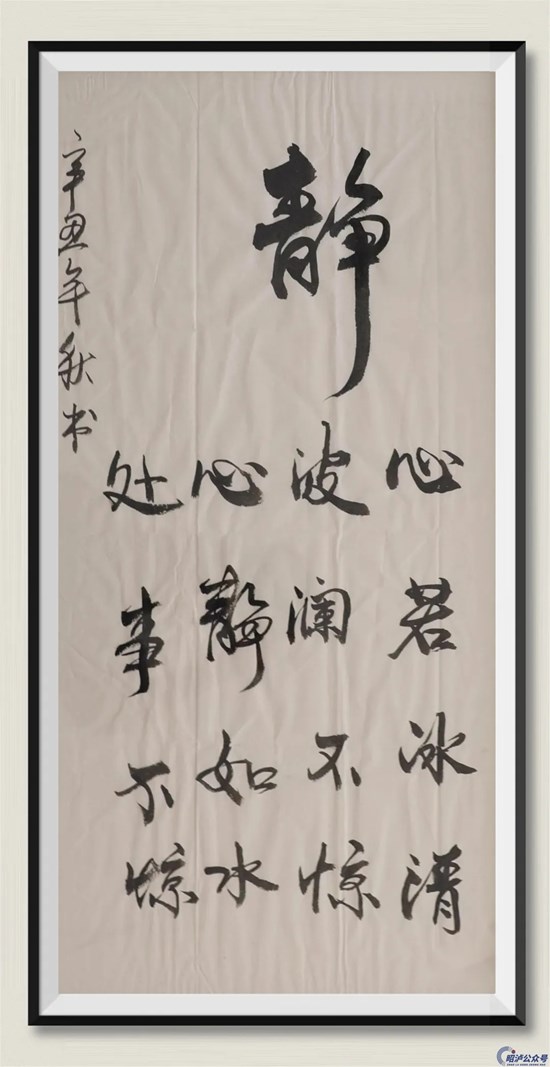 静
心若冰清
波澜不惊
心静如水
处事不惊
辛丑年秋书
昭泸公众号